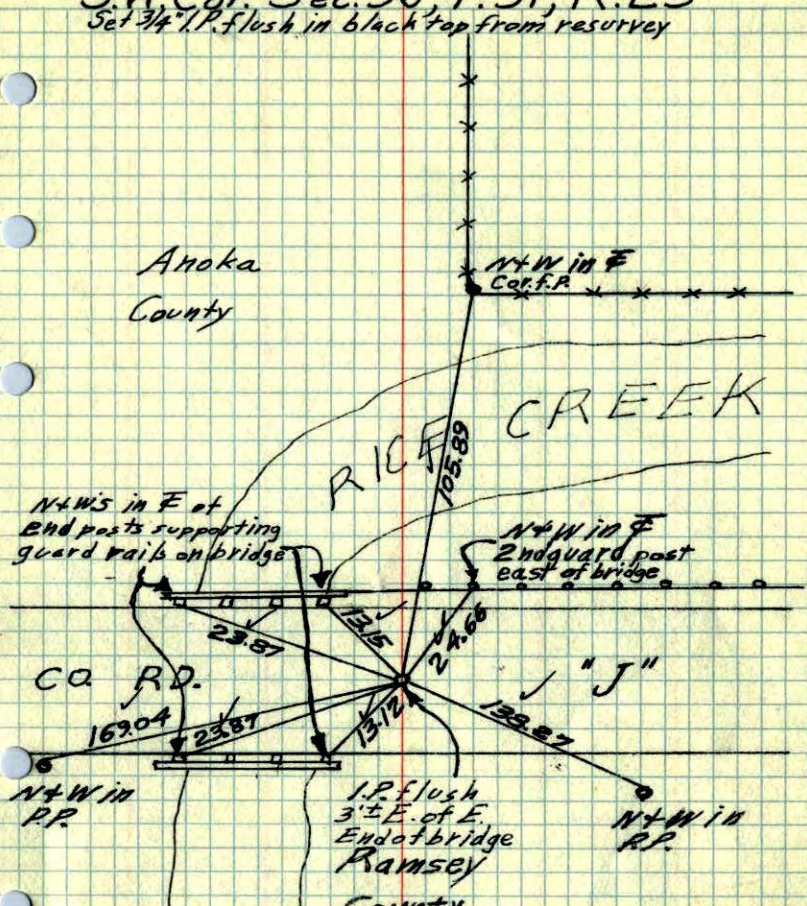 S.W. Cor. Sec. 30, T.31, R.23
Set 3/4" I.P. flush in black top from resurvey
Anoka
County
N+W in ₵
Cor. f.P.
RICE CREEK
105.89
N+W's in ₵ of
end posts supporting
guard rails on bridge
N+W in ₵
2nd guard post
east of bridge
13.15
24.66
23.87
CO. RD. "J"
169.04
23.87
13.12
138.87
N+W in
P.P.
I.P. flush
3'± E. of E.
End of bridge
N+W in
P.P.
Ramsey
County